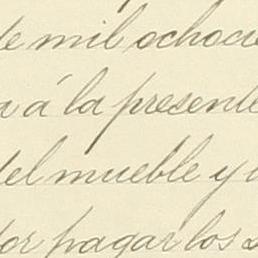 de mil ochocie
a á la presente
del mueble y
por pagar los